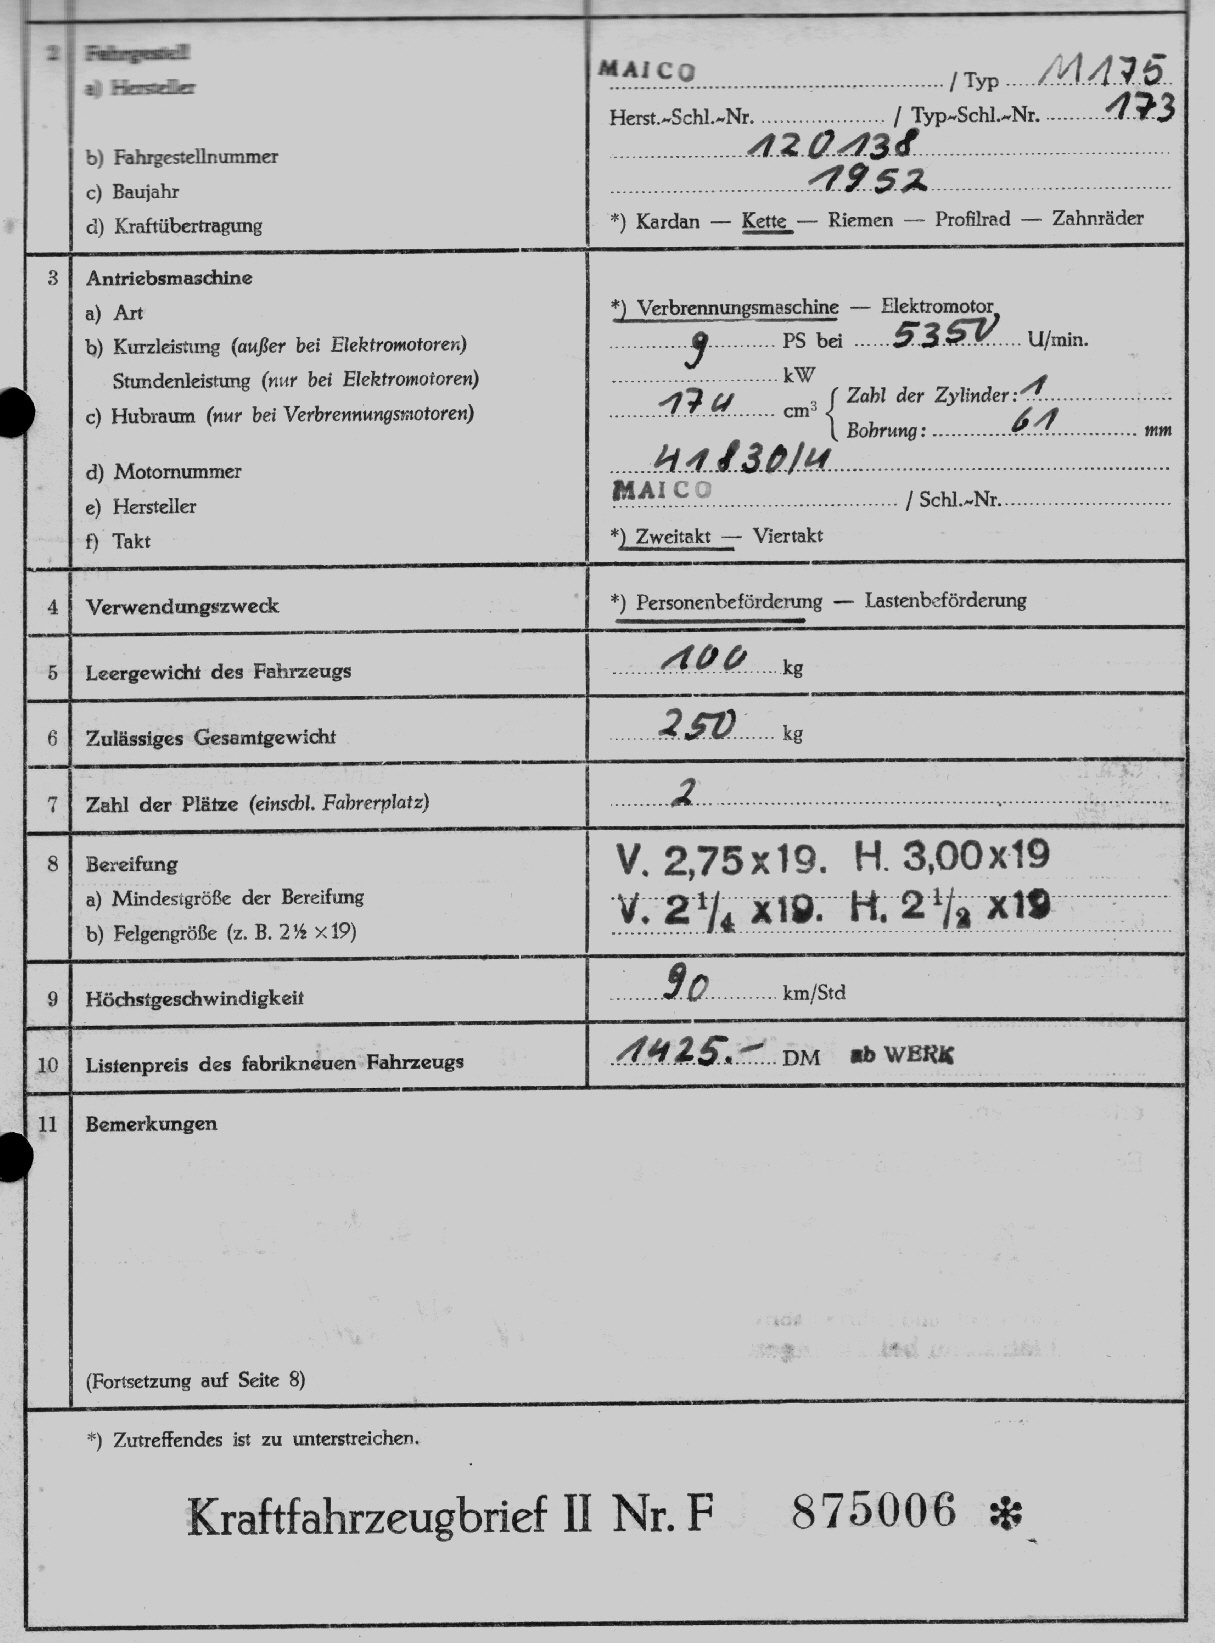 2 Fahrgestell
a) Hersteller MAICO / Typ M175
Herst.-Schl.-Nr. / Typ-Schl.-Nr. 173
b) Fahrgestellnummer 120138
c) Baujahr 1952
d) Kraftübertragung *) Kardan — Kette — Riemen — Profilrad — Zahnräder
3 Antriebsmaschine
a) Art *) Verbrennungsmaschine — Elektromotor
b) Kurzleistung (außer bei Elektromotoren) 9 PS bei 5350 U/min.
Stundenleistung (nur bei Elektromotoren) kW
c) Hubraum (nur bei Verbrennungsmotoren) 174 cm³ { Zahl der Zylinder: 1
Bohrung: 61 mm
d) Motornummer 41830/4
e) Hersteller MAICO / Schl.-Nr.
f) Takt *) Zweitakt — Viertakt
4 Verwendungszweck *) Personenbeförderung — Lastenbeförderung
5 Leergewicht des Fahrzeugs 100 kg
6 Zulässiges Gesamtgewicht 250 kg
7 Zahl der Plätze (einschl. Fahrerplatz) 2
8 Bereifung V. 2,75x19. H. 3,00x19
a) Mindestgröße der Bereifung V. 2 1/4 x19. H. 2 1/2 x19
b) Felgengröße (z. B. 2½ × 19)
9 Höchstgeschwindigkeit 90 km/Std
10 Listenpreis des fabrikneuen Fahrzeugs 1425.— DM ab WERK
11 Bemerkungen
(Fortsetzung auf Seite 8)
*) Zutreffendes ist zu unterstreichen.
Kraftfahrzeugbrief II Nr. F 875006 *